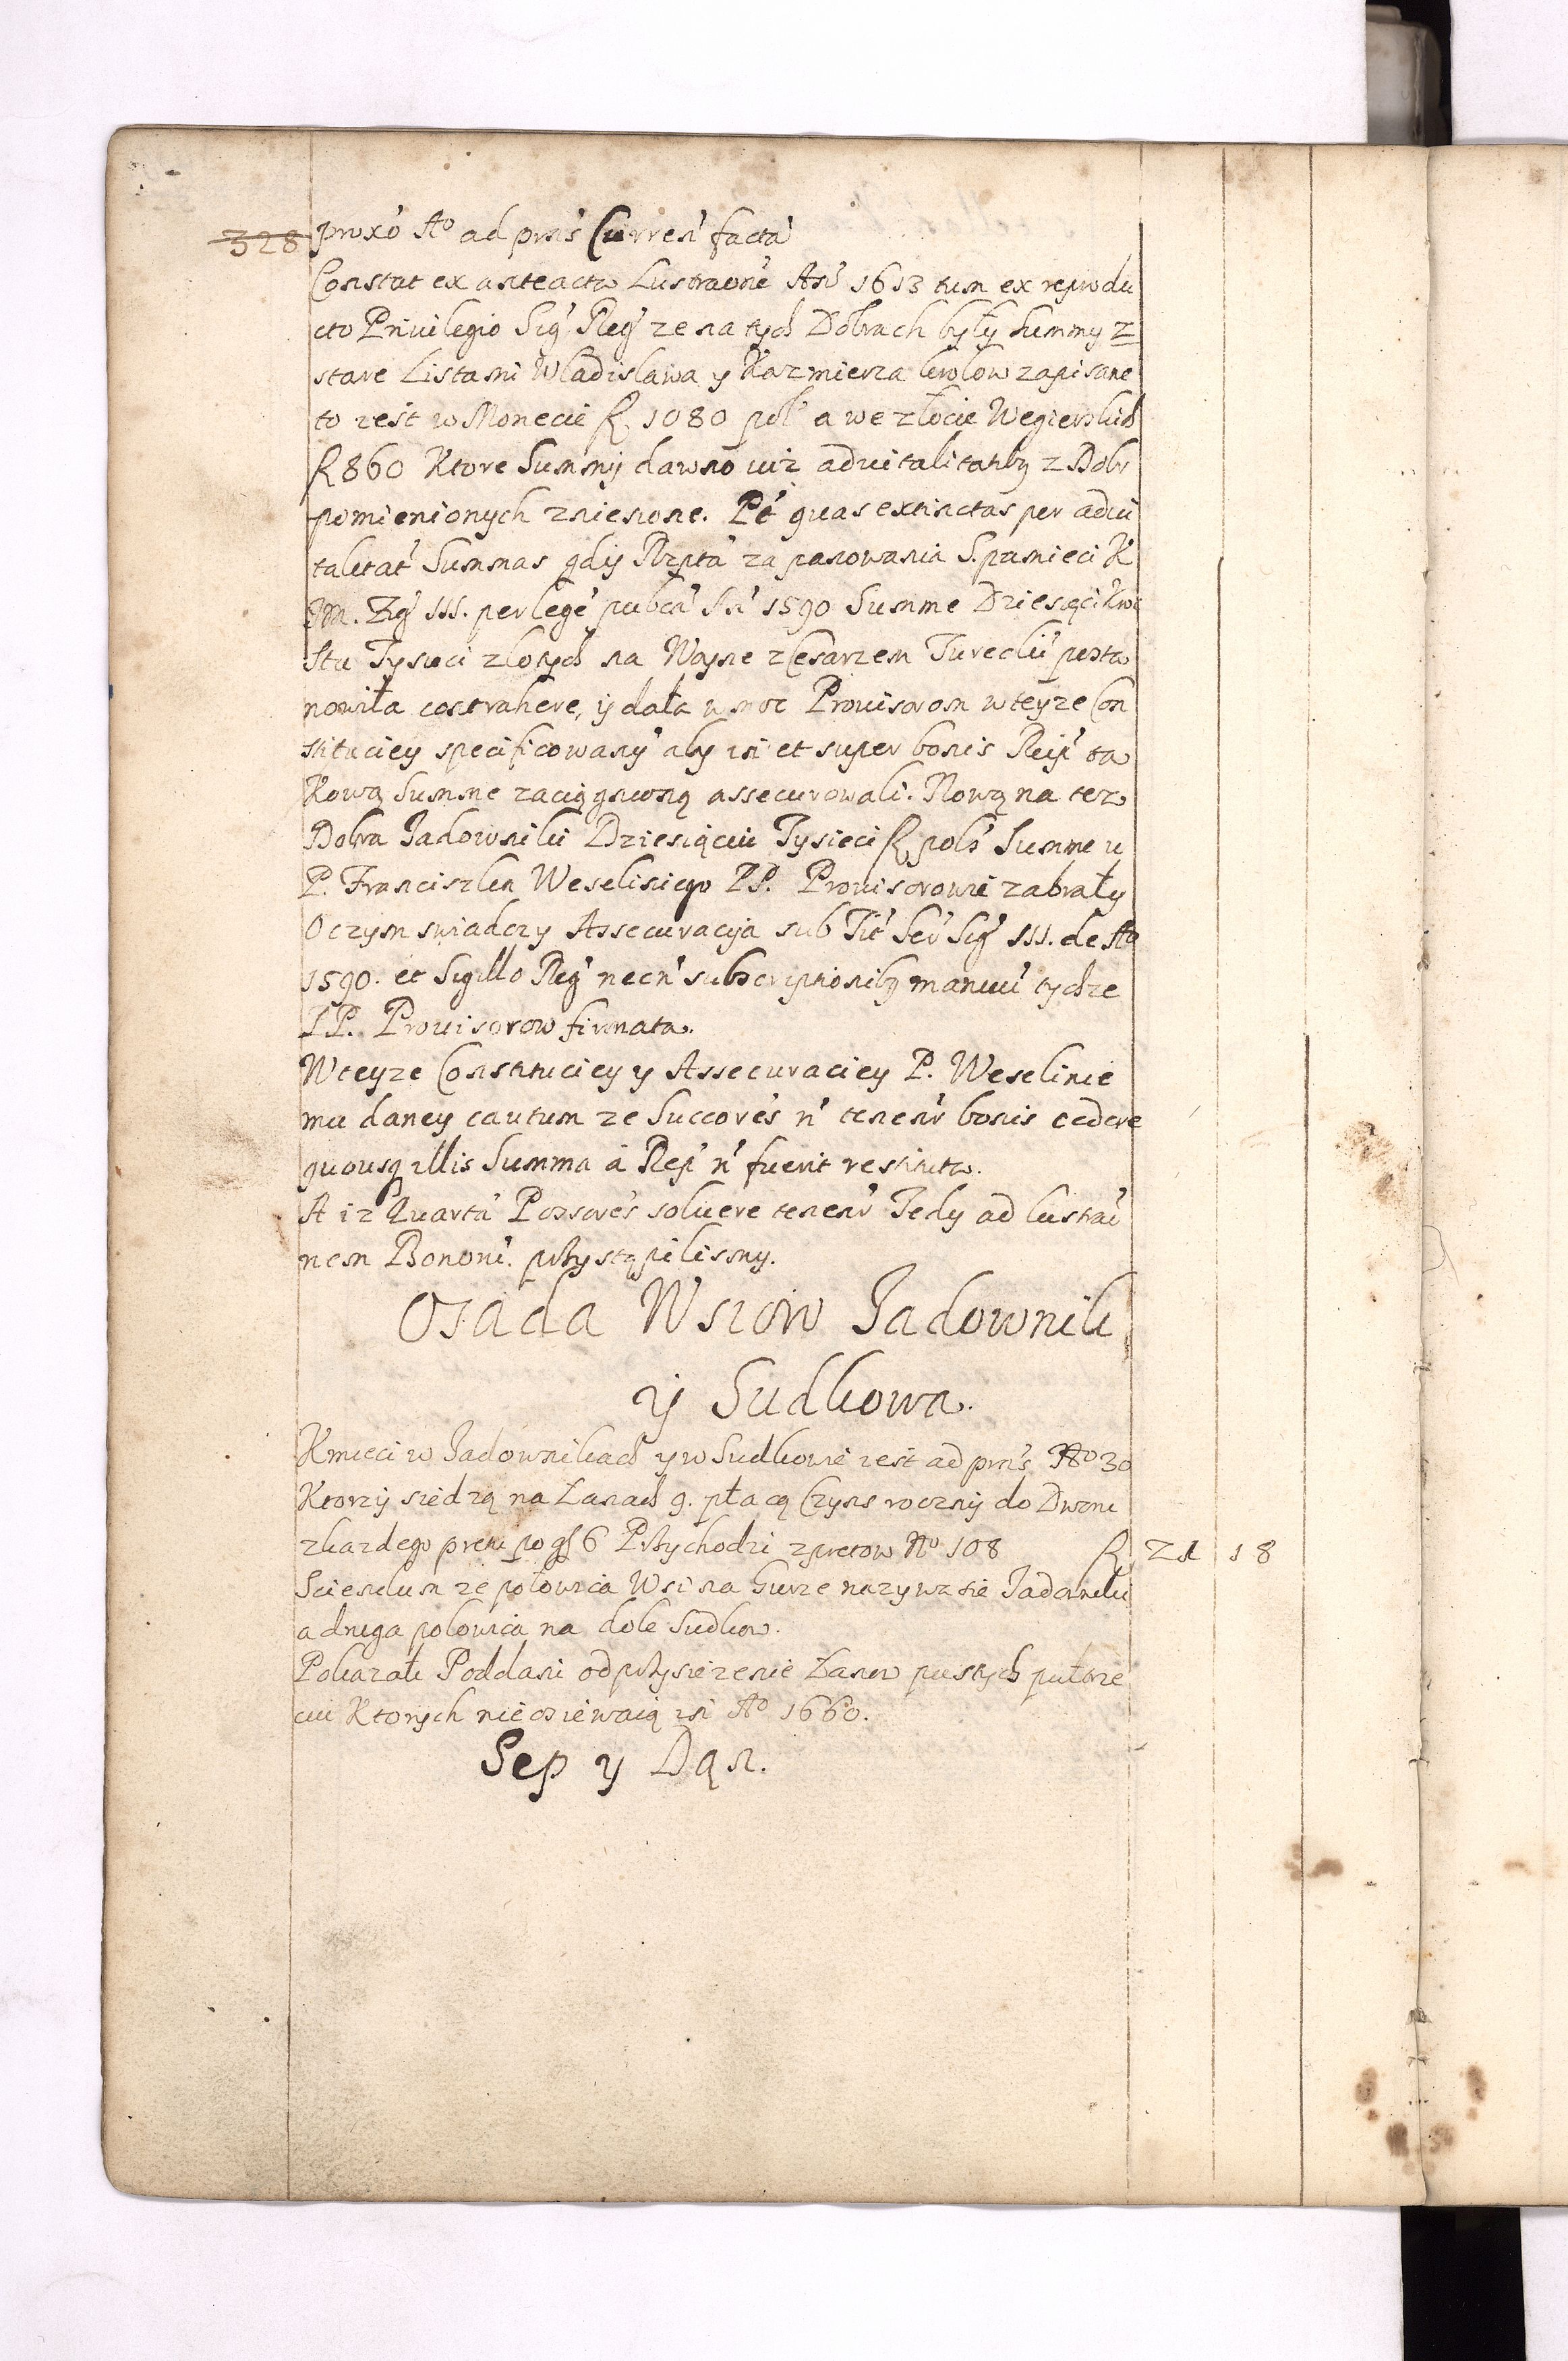 328
proxo Aº ad prns Curren facta
Constat ex anteacta Lustraone An 1613 tum ex reprodu
cto Priuilegio Sig Reg ze na tych Dobrach były Summy z
stare Listami Wladislawa y Kazmierza krolow zapisane
to iest w Monecie fl. 1080 pol a we złocie Wegierskich
fl 860 Ktore Summy dawno iuiz aduitalitatibz z Dobr
pomienionych zniesione. Pt quas extinctas per adui
talitat Summas gdy Rzpta za panowania S. pamieci K
JM. Zig III. per lege pubca An 1590 Summe Dziesięci kroc
Stu Tysieci złotych na Woyne z Cesarzem Tureckiu posta
nowiła contrahere, y dała w moc Prouisorom w teyze Con
stituciey specificowany aby isi et super bonis Reip ta
Kową Summe zaciągnioną assecurowali. Nową na tez
Dobra Jadowniki Dziesiąciu Tysieci fl pols Summe u
P. Franciszka Weseliniego PP. Prouisorowie zabrały
O czym swiadczy Assecuracyia sub Tit Ser Sig III. de Aº
1590. et Sigillo Reg necn subscriptionibz manuu tychze
PP. Prouisorow firmata.
W teyze Constituciey y Assecuraciey P. Weselinie
mu daney cautum ze Succores n tenent bonis cedere
quousq illis Summa à Reip n fuerit restituta.
A iz Quarta Possores soluere tenent Tedy ad lustrao
nem Bonom. przystąpilismy.
Osada Wsiow Jadownik
y Sudkowa.
Kmieci w Jadownikach y w Sudkowie iest ad prns Nº 30
Ktorzy siedzą na Lanach 9. płacą Czyns roczny do Dworu
zkazdego preta po gr 6 Przychodzi z pretow Nº 108 fl 21 18
Sciendum ze połowica Wsi na Gurze nazywa sie Jadowniki
a druga polowica na dole Sudkow.
Pokazali Poddani od przysiezenie Łanow pustych pułtrze
ciu Ktorych nie osiewaią isi Aº 1660.
Sep y Dąn.